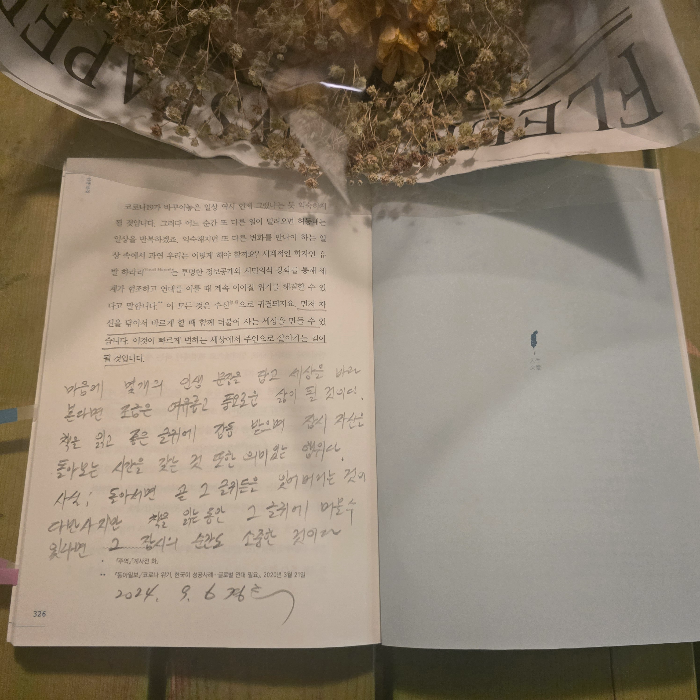 코로나19가 바꾸어놓은 일상 역시 언제 그랬냐는 듯 익숙해져
할 것입니다. 그러다 어느 순간 또 다른 일이 밀려오면 허둥대는
일상을 반복하겠죠. 익숙해지면 또 다른 변화를 만나야 하는 일
상 속에서 과연 우리는 어떻게 해야 할까요? 세계적인 학자인 유
발 하라리는
세가 필요하고 연대를 이룰 때 계속 이어질 위기를 해결할 수 있
다고 말합니다. 이 모든 것은 수신으로 귀결되지요. 먼저 자
신을 닦아서 바르게 설 때 함께 더불어 사는 세상을 만들 수 있
습니다. 이것이 빠르게 변하는 세상에서 주인으로 살아가는 길이
될 것입니다.
마음에 몇개의 인생 문장을 담고 세상을 바라
본다면 조금은 여유롭고 풍요로운 삶이 될 것이다.
책을 읽고 좋은 글귀에 감동 받으며 잠시 자신을
돌아보는 시간을 갖는 것 또한 의미있는 행위다.
사실, 돌아서면 곧 그 글귀들은 잊어버리는 것이
다반사지만 책을 읽는 동안 그 글귀에 머물수
있다면 그 잠시의 순간도 소중한 것이다
* 『주역』, 계사전 하.
** 『동아일보』, "코로나 위기, 한국이 성공사례…글로벌 연대 필요", 2020년 3월 21일
2024. 9. 6
326
FLE